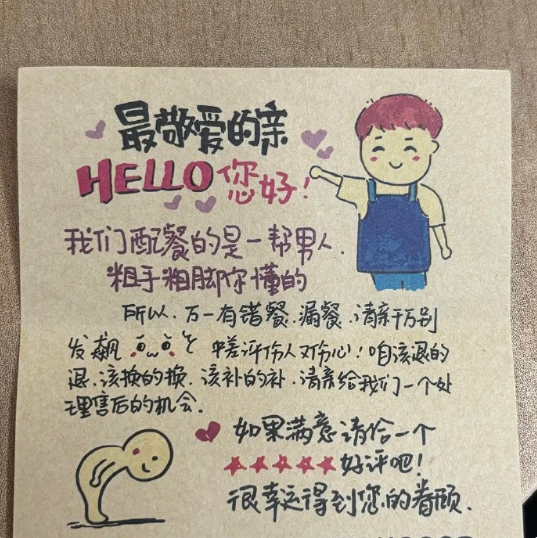 最敬爱的亲
HELLO 您好!
我们配餐的是一帮男人.
粗手粗脚你懂的
所以.万一有错餐.漏餐.请亲千万别
发飙 中差评伤人又伤心!咱该退的
退.该换的换.该补的补.请亲给我们一个处
理售后的机会.
如果满意请给一个
★★★★★好评吧!
很幸运得到您的眷顾.